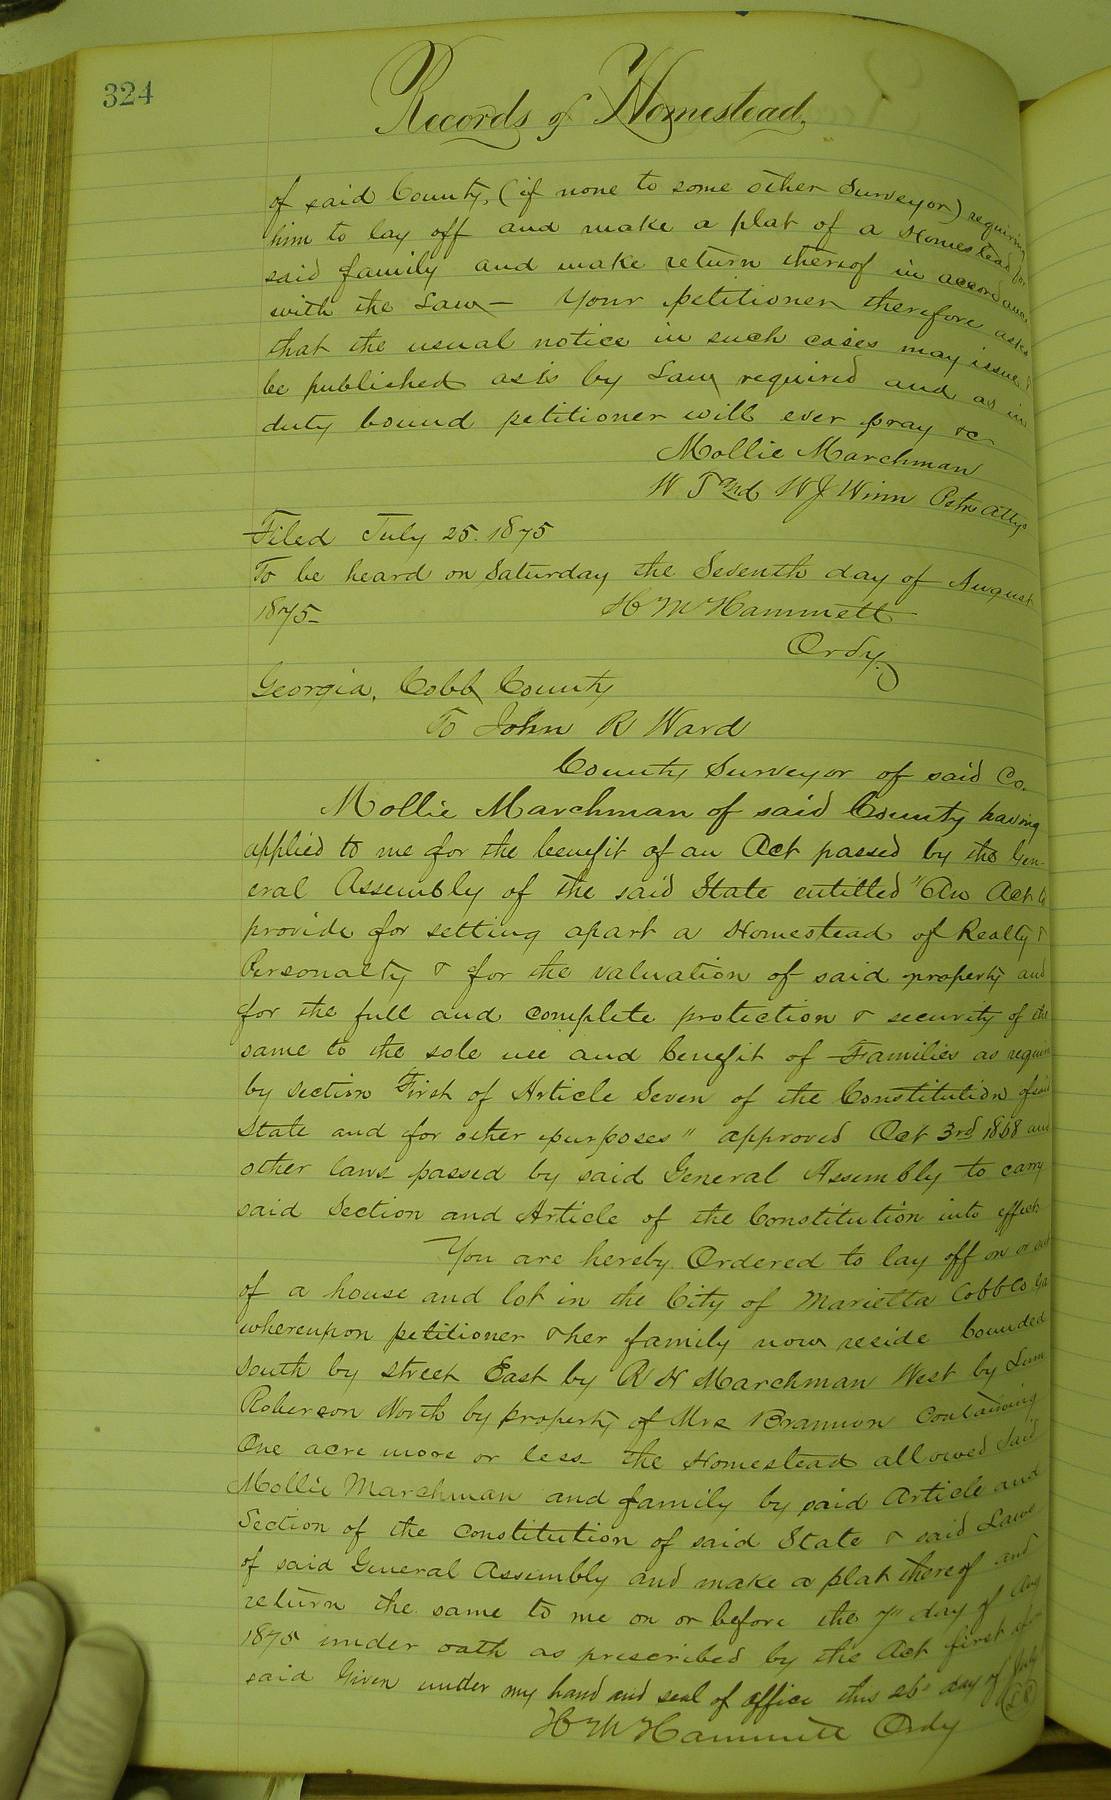 324
Records of Homestead,
of said County, (if none to some other Surveyor) requiring
him to lay off and make a plat of a Homestead for
said family and make return thereof in accordance
with the Law — Your petitioner therefore asks
that the usual notice in such cases may issue &
be published as is by Law required and as in
duty bound petitioner will ever pray &c
Mollie Marchman
W J Winn Petrs Attys
Filed July 25. 1875
To be heard on Saturday the Seventh day of August
1875— H M Hammett
Ordy.
Georgia, Cobb County
To John R Ward
County Surveyor of said Co.
Mollie Marchman of said County having
applied to me for the benefit of an Act passed by the Gen-
eral Assembly of the said State entitled "An Act to
provide for setting apart a Homestead of Realty &
Personalty & for the valuation of said property and
for the full and complete protection & security of the
same to the sole use and benefit of Families as require
by section First of Article Seven of the Constitution of said
State and for other purposes" approved Oct 3rd 1868 and
other laws passed by said General Assembly to carry
said Section and Article of the Constitution into effect
You are hereby Ordered to lay off on or out
of a house and lot in the City of Marietta Cobb Co Ga
whereupon petitioner & her family now reside bounded
South by street East by R N Marchman West by
Roberson North by property of Mrs Brannon Containing
One acre more or less the Homestead allowed said
Mollie Marchman and family by said Article and
Section of the Constitution of said State & said Laws
of said General Assembly and make a plat thereof and
return the same to me on or before the 7" day of Aug
1875 under oath as prescribed by the Act first afore
said Given under my hand and seal of office this 26" day of July
H M Hammett Ordy